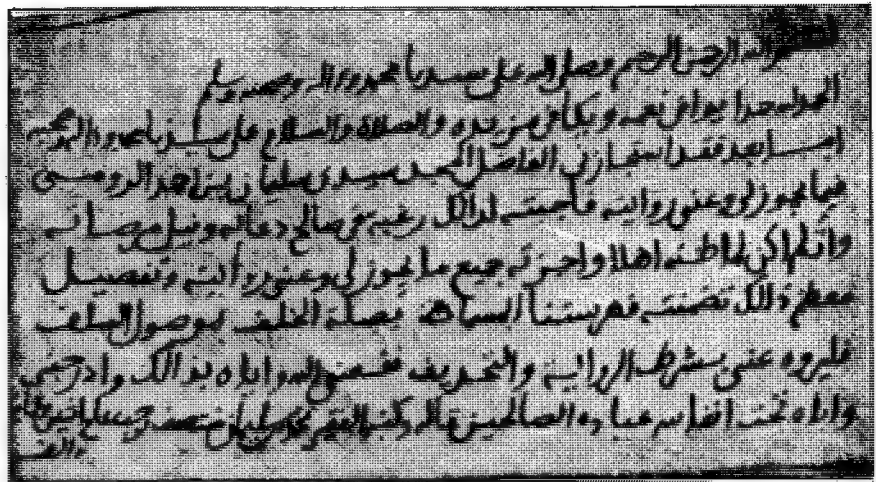 بسم الله الرحمن الرحيم وصلى الله على سيدنا محمد وءاله وصحبه وسلم
الحمد لله حمدا يوافى نعمه ويكافئ مزيده والصلاة والسلام على سيدنا محمد وءاله وصحبه
اما بعد فقد استجازنى الفاضل سيدى سليمان بن احمد
فيما يجوز لى وعنى روايته فأجبته لذالك رغبة فى صالح دعائه ونيل مرضاته
وان لم اكن لما ظنه اهلا واجزته جميع ما يجوز لى وعنى روايته وتفصيل
معظم ذالك تضمنته فهرستنا المسماة بصلة الخلف بموصول السلف
فليروه عنى بشرط الرواية والتحديث نفعنى الله واياه بذالك وادرجنى
واياه تحت انفاس عباده الصالحين قاله وكتبه الفقير محمد بن سليمان منتصف
والف